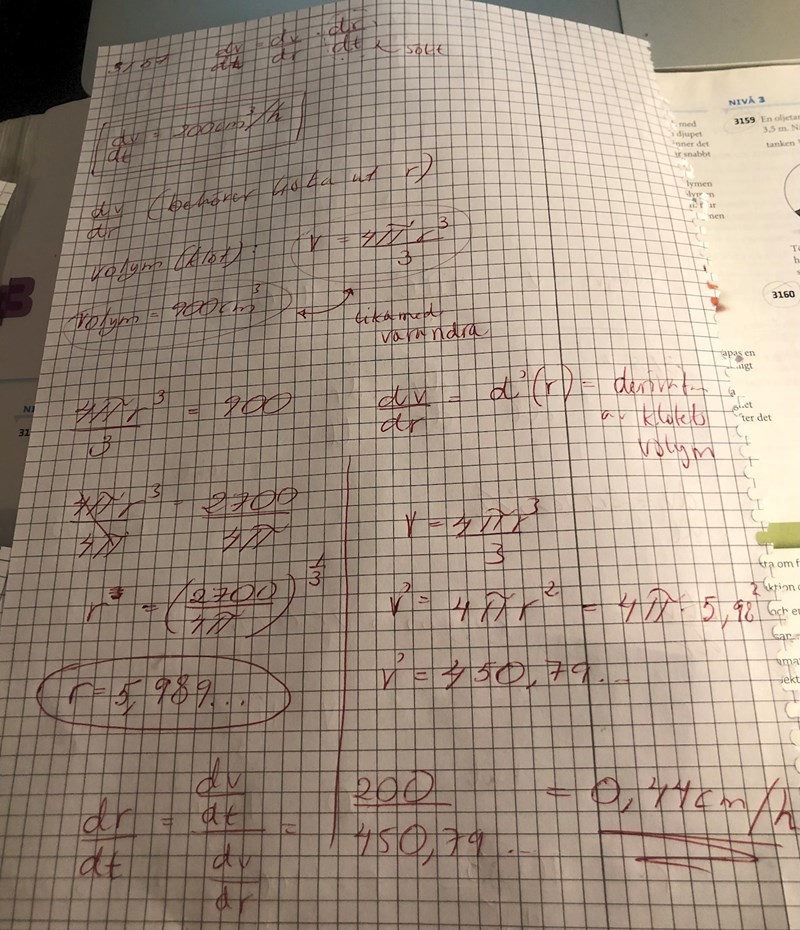 3157 dv/dt = dv/dr · dr/dt ← sökt
dv/dt = 200cm³/h
dv/dr (behöver hitta ut r)
volym (klot): V = 4πr³/3
volym = 900cm³
lika med
varandra
4πr³/3 = 900
dv/dr = d'(r) = derivat
av klotets
volym
4πr³/4π = 2700/4π
V = 4πr³/3
r = (2700/4π)^(1/3)
V' = 4πr² = 4π · 5,98²
r = 5,989...
V' = 450,79...
dr/dt = (dv/dt)/(dv/dr) = 200/450,79... = 0,44cm/h
NIVÅ 3
3159 En oljetan
3,5 m. N
tanken
3160
med
djupet
nner det
snabbt
lymen
men